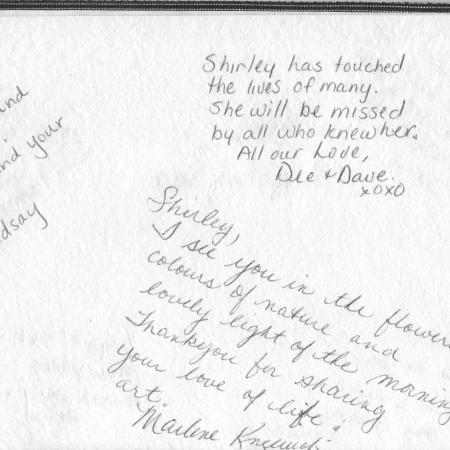 and
and your
dsay
Shirley has touched
the lives of many.
She will be missed
by all who knew her.
All our Love,
Dee + Dave.
xoxo
Shirley,
I see you in the flowers
colours of nature and
lovely light of the morning
Thankyou for sharing
your love of life &
art.
Marlene